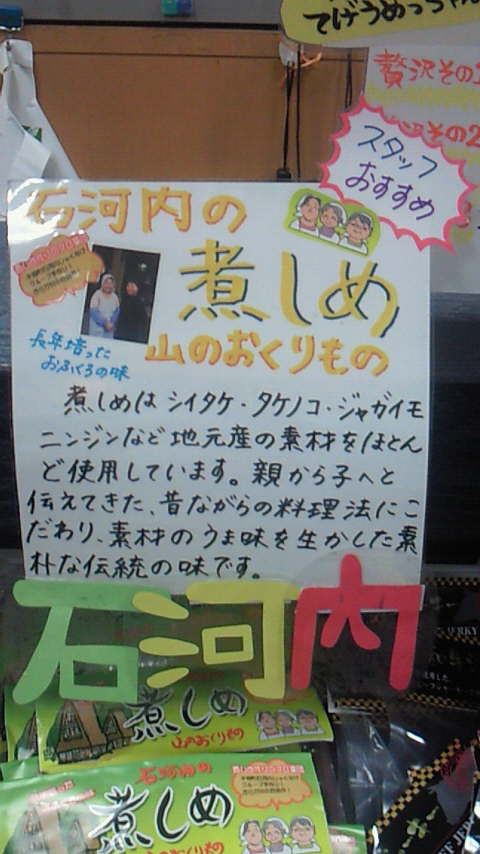 てげうめっちゃ
贅沢その1
その2
スタッフ
おすすめ
石河内の
煮しめ
長年培った
おふくろの味
山のおくりもの
煮しめはシイタケ・タケノコ・ジャガイモ
ニンジンなど地元産の素材をほとん
ど使用しています。親から子へと
伝えてきた、昔ながらの料理法にこ
だわり、素材のうま味を生かした素
朴な伝統の味です。
石河内
煮しめ
山のおくりもの
石河内の
煮しめ
山のおくりもの